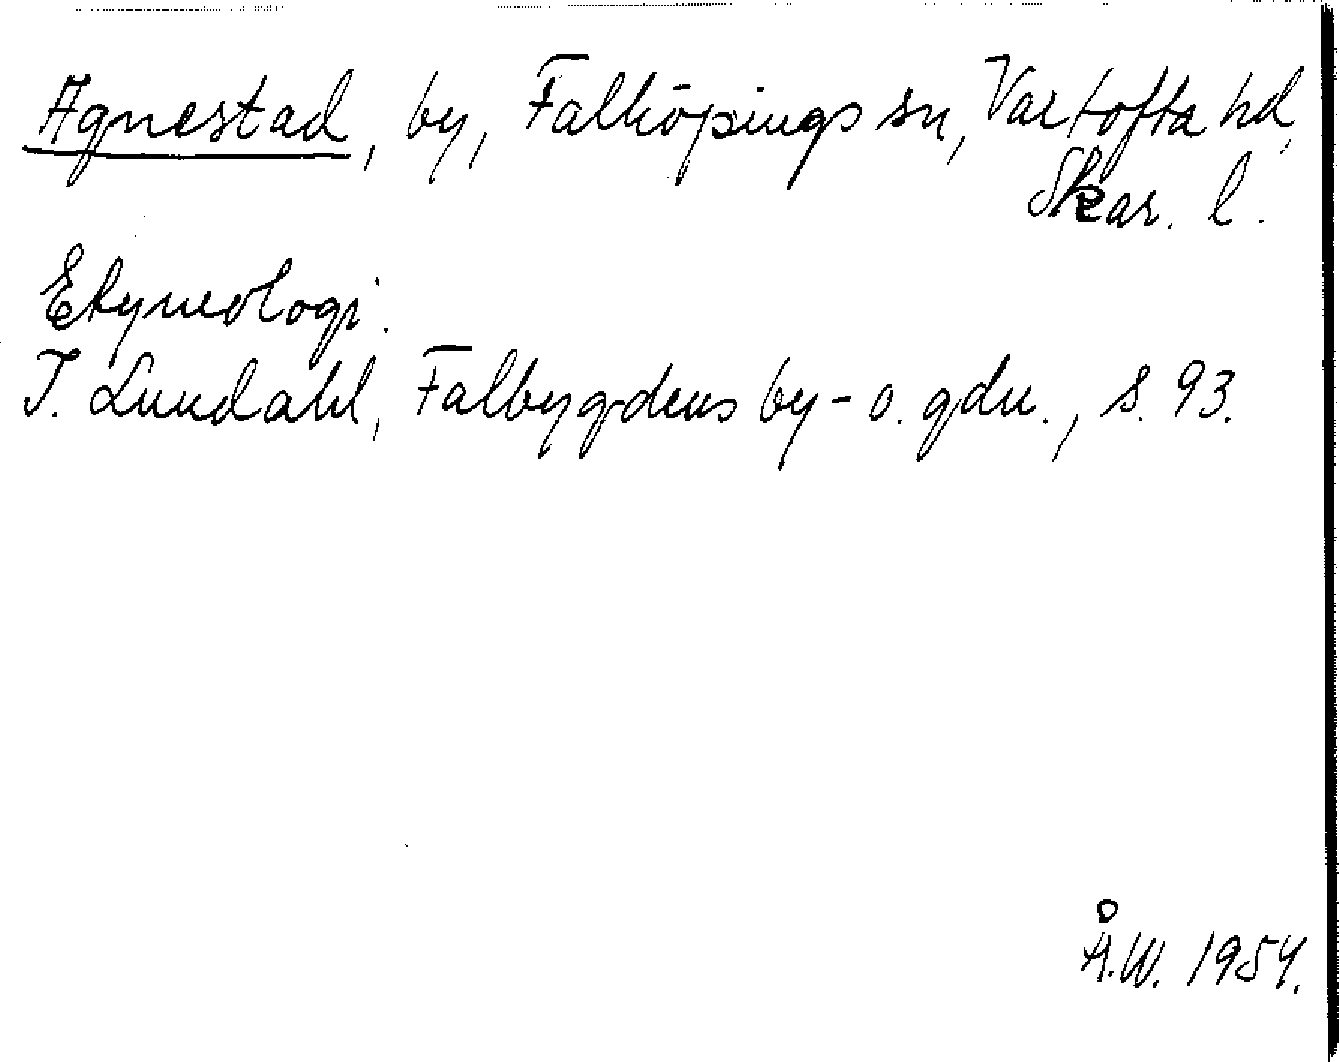 Agnestad, by, Falköpings sn, Vartofta hd,
Skar. l.
Etymologi.
I. Lundahl, Falbygdens by- o. gdn., s. 93.
Å.W. 1954.